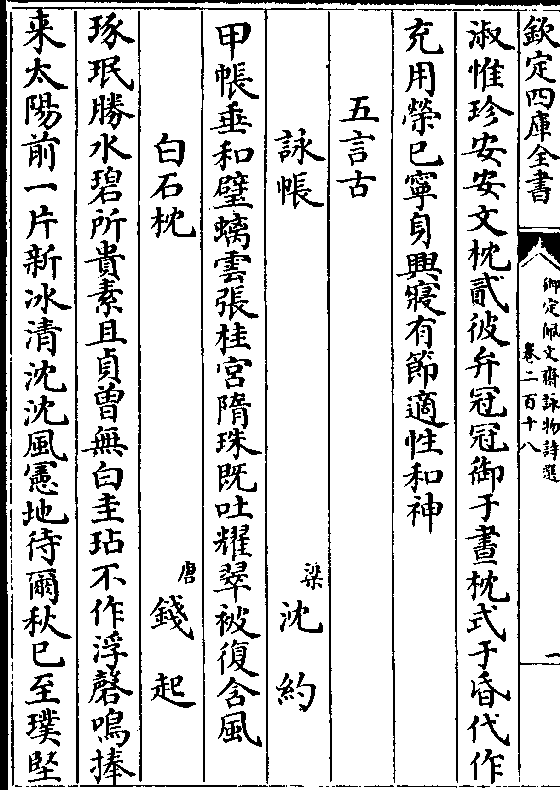 欽定四庫全書
御定佩文齋詠物詩選
卷二百十八
一
淑惟珍安安文枕貳彼弁冠冠御于晝枕式于昏代作
充用榮已寧身興寢有節適性和神
五言古
詠帳 梁 沈約
甲帳垂和璧螭雲張桂宮隋珠既吐耀翠被復含風
白石枕 唐 錢起
琢珉勝水碧所貴素且貞曾無白圭玷不作浮磬鳴捧
来太陽前一片新冰清沈沈風憲地待爾秋已至璞堅